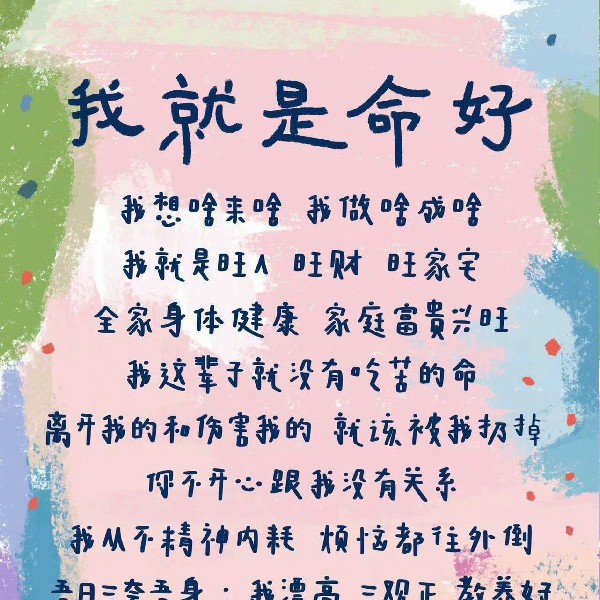 我就是命好
我想啥来啥 我做啥成啥
我就是旺人 旺财 旺家宅
全家身体健康 家庭富贵兴旺
我这辈子就没有吃苦的命
离开我的和伤害我的 就该被我扔掉
你不开心跟我没有关系
我从不精神内耗 烦恼都往外倒
吾日三夸吾身：我漂亮 三观正 教养好